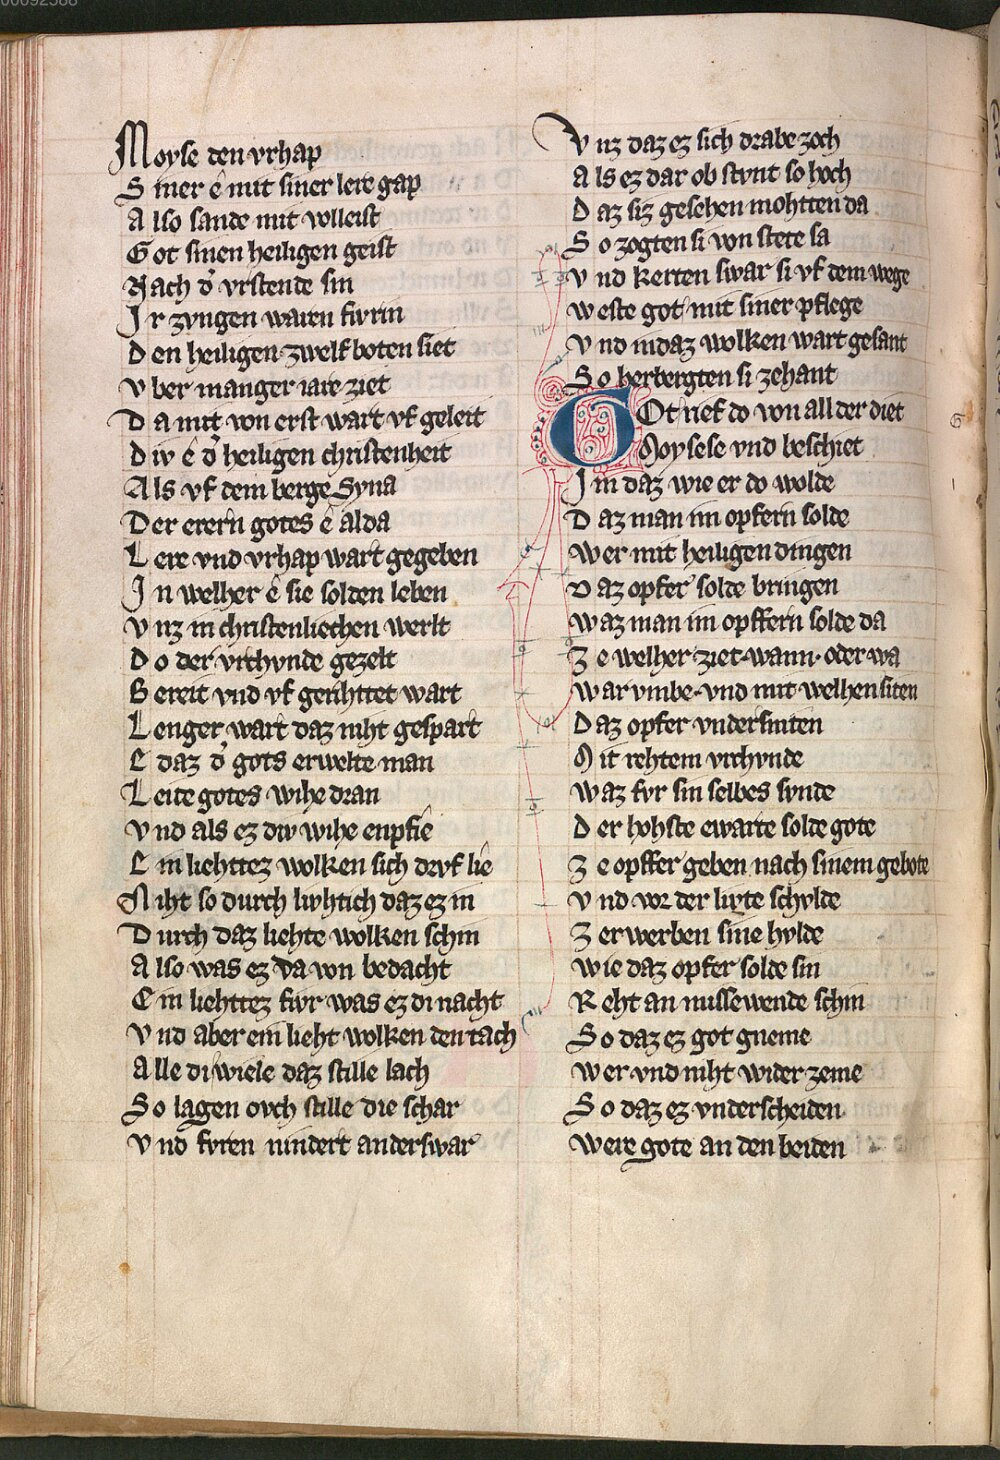 00092588
Moyse den vrhap
Siner ê mit siner lere gap
Also sande mit volleist
Got sinen heiligen geist
Nach d' vrstende sin
Ir zvngen warn fivrin
Den heiligen zwelfboten siet
Vber manger iare ziet
Da mit von erst wart vf geleit
Div ê d' heiligen christenheit
Als vf dem berge Syna
Der erern gotes ê alda
Lere vnd vrhap wart gegeben
In welher ê sie solden leben
Vnz in christenliechen werlt
Do der vrchvnde gezelt
Bereit vnd vf gerihttet wart
Lenger wart daz niht gespart
E daz d' gots erwelte man
Leite gotes wihe dran
Vnd als ez div wihe enpfie
Ein liehttez wolken sich drvf lie
Niht so durch livhtich daz ez in
Durch daz liehte wolken schin
Also was ez da von bedacht
Ein liehttez fivr was ez di nacht
Vnd aber ein lieht wolken den tach
Alle di wiele daz stille lach
So lagen ovch stille die schar
Vnd fvren nindert anderswar
Vnz daz ez sich drabe zoch
Als ez dar ob stvnt so hoch
Daz siz gesehen mohtten da
So zogten si von stete sa
Vnd kerten swar si vf dem wege
Weste got mit siner pflege
Vnd in daz wolken wart gesant
So herbergten si zehant
Got rief do von all der diet
Moysese vnd beschiet
Im daz wie er do wolde
Daz man im opfern solde
Wer mit heiligen dingen
Daz opfer solde bringen
Waz man im opffern solde da
Ze welher ziet wann oder wa
War vmbe vnd mit welhen siten
Daz opfer vndersniten
Mit rehtem vrchvnde
Waz fvr sin selbes svnde
Der hohste ewarte solde gote
Ze opffer geben nach sinem gebote
Vnd vor der livte schvlde
Zerwerben sine hvlde
Wie daz opfer solde sin
Reht an missewende schin
So daz ez got gneme
Wer vnd niht widerzeme
So daz ez vnderscheiden
Were gote an den beiden